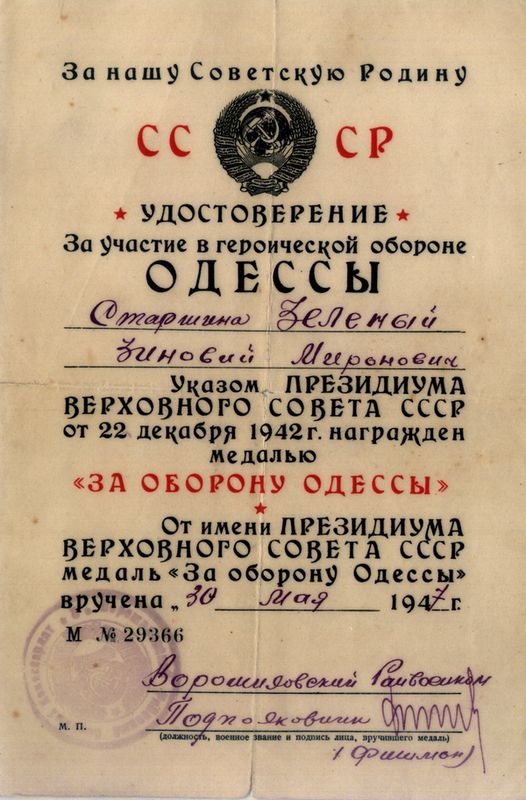 За нашу Советскую Родину
СС СР
УДОСТОВЕРЕНИЕ
За участие в героической обороне
ОДЕССЫ
Старшина Зеленый
Зиновий Миронович
Указом ПРЕЗИДИУМА
ВЕРХОВНОГО СОВЕТА СССР
от 22 декабря 1942 г. награжден
медалью
«ЗА ОБОРОНУ ОДЕССЫ»
От имени ПРЕЗИДИУМА
ВЕРХОВНОГО СОВЕТА СССР
медаль «За оборону Одессы»
вручена „30 мая 1947 г.
М № 29366
Ворошиловский Райвоенком
М. П. Подполковник
(должность, военное звание и подпись лица, вручившего медаль)
(Фишман)